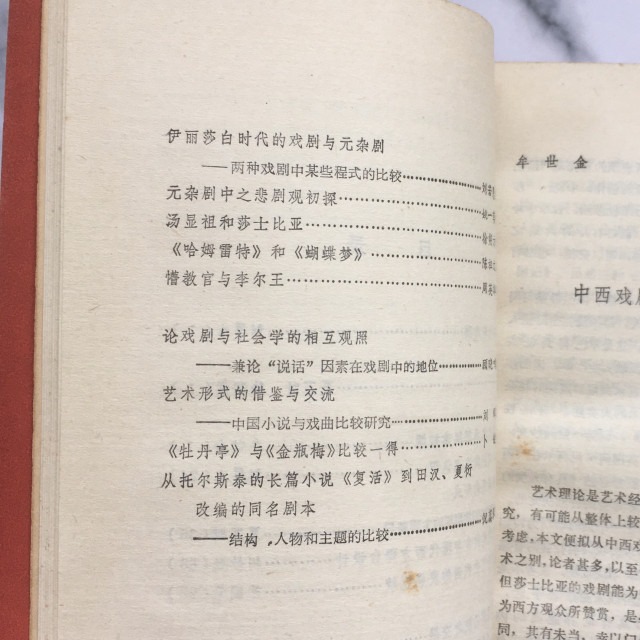 伊丽莎白时代的戏剧与元杂剧
——两种戏剧中某些程式的比较
元杂剧中之悲剧观初探
汤显祖和莎士比亚
《哈姆雷特》和《蝴蝶梦》
懵教官与李尔王
论戏剧与社会学的相互观照
——兼论“说话”因素在戏剧中的地位
艺术形式的借鉴与交流
——中国小说与戏曲比较研究
《牡丹亭》与《金瓶梅》比较一得
从托尔斯泰的长篇小说《复活》到田汉、夏衍
改编的同名剧本
——结构，人物和主题的比较
牟世金
中西戏
艺术理论是艺术经
究，有可能从整体上较
考虑，本文便拟从中西戏
术之别，论者甚多，以至
但莎士比亚的戏剧能为
为西方观众所赞赏，是
同，其有未当，幸以